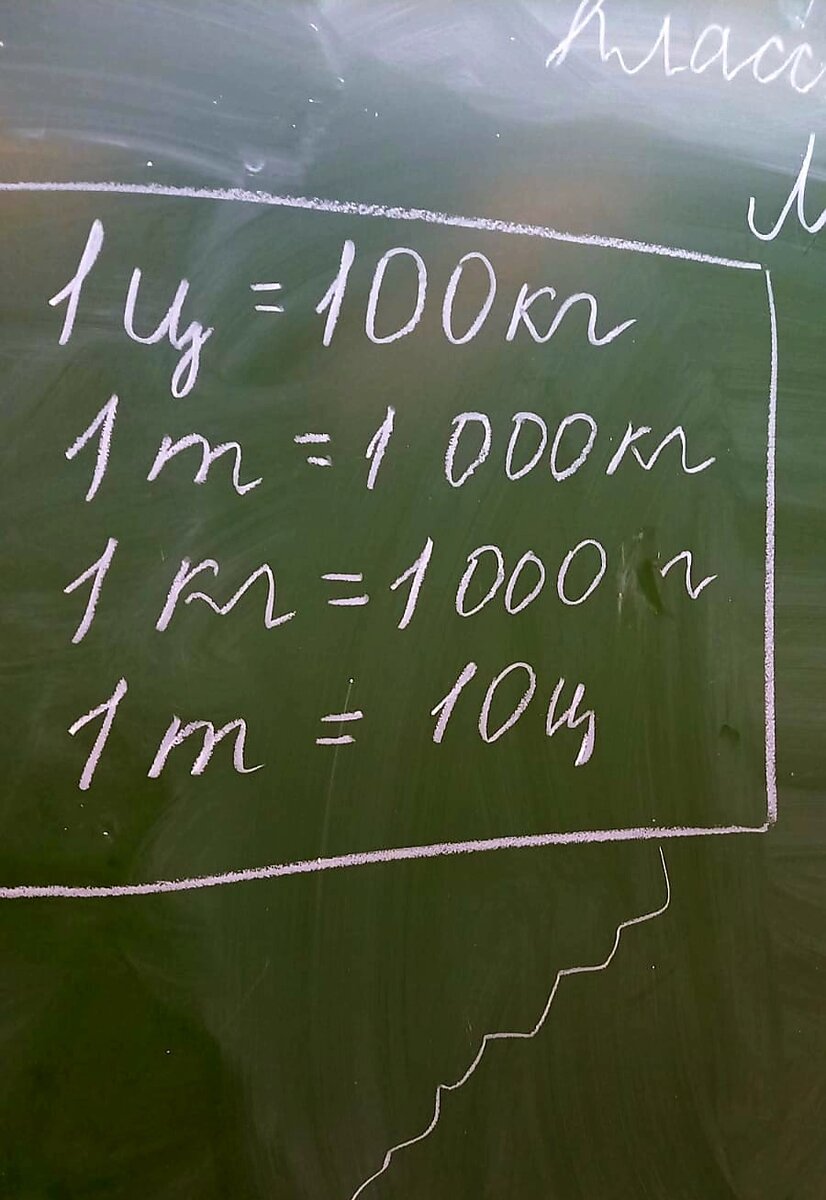 Класс
1 ц = 100 кг
1 т = 1 000 кг
1 кг = 1 000 г
1 т = 10 ц